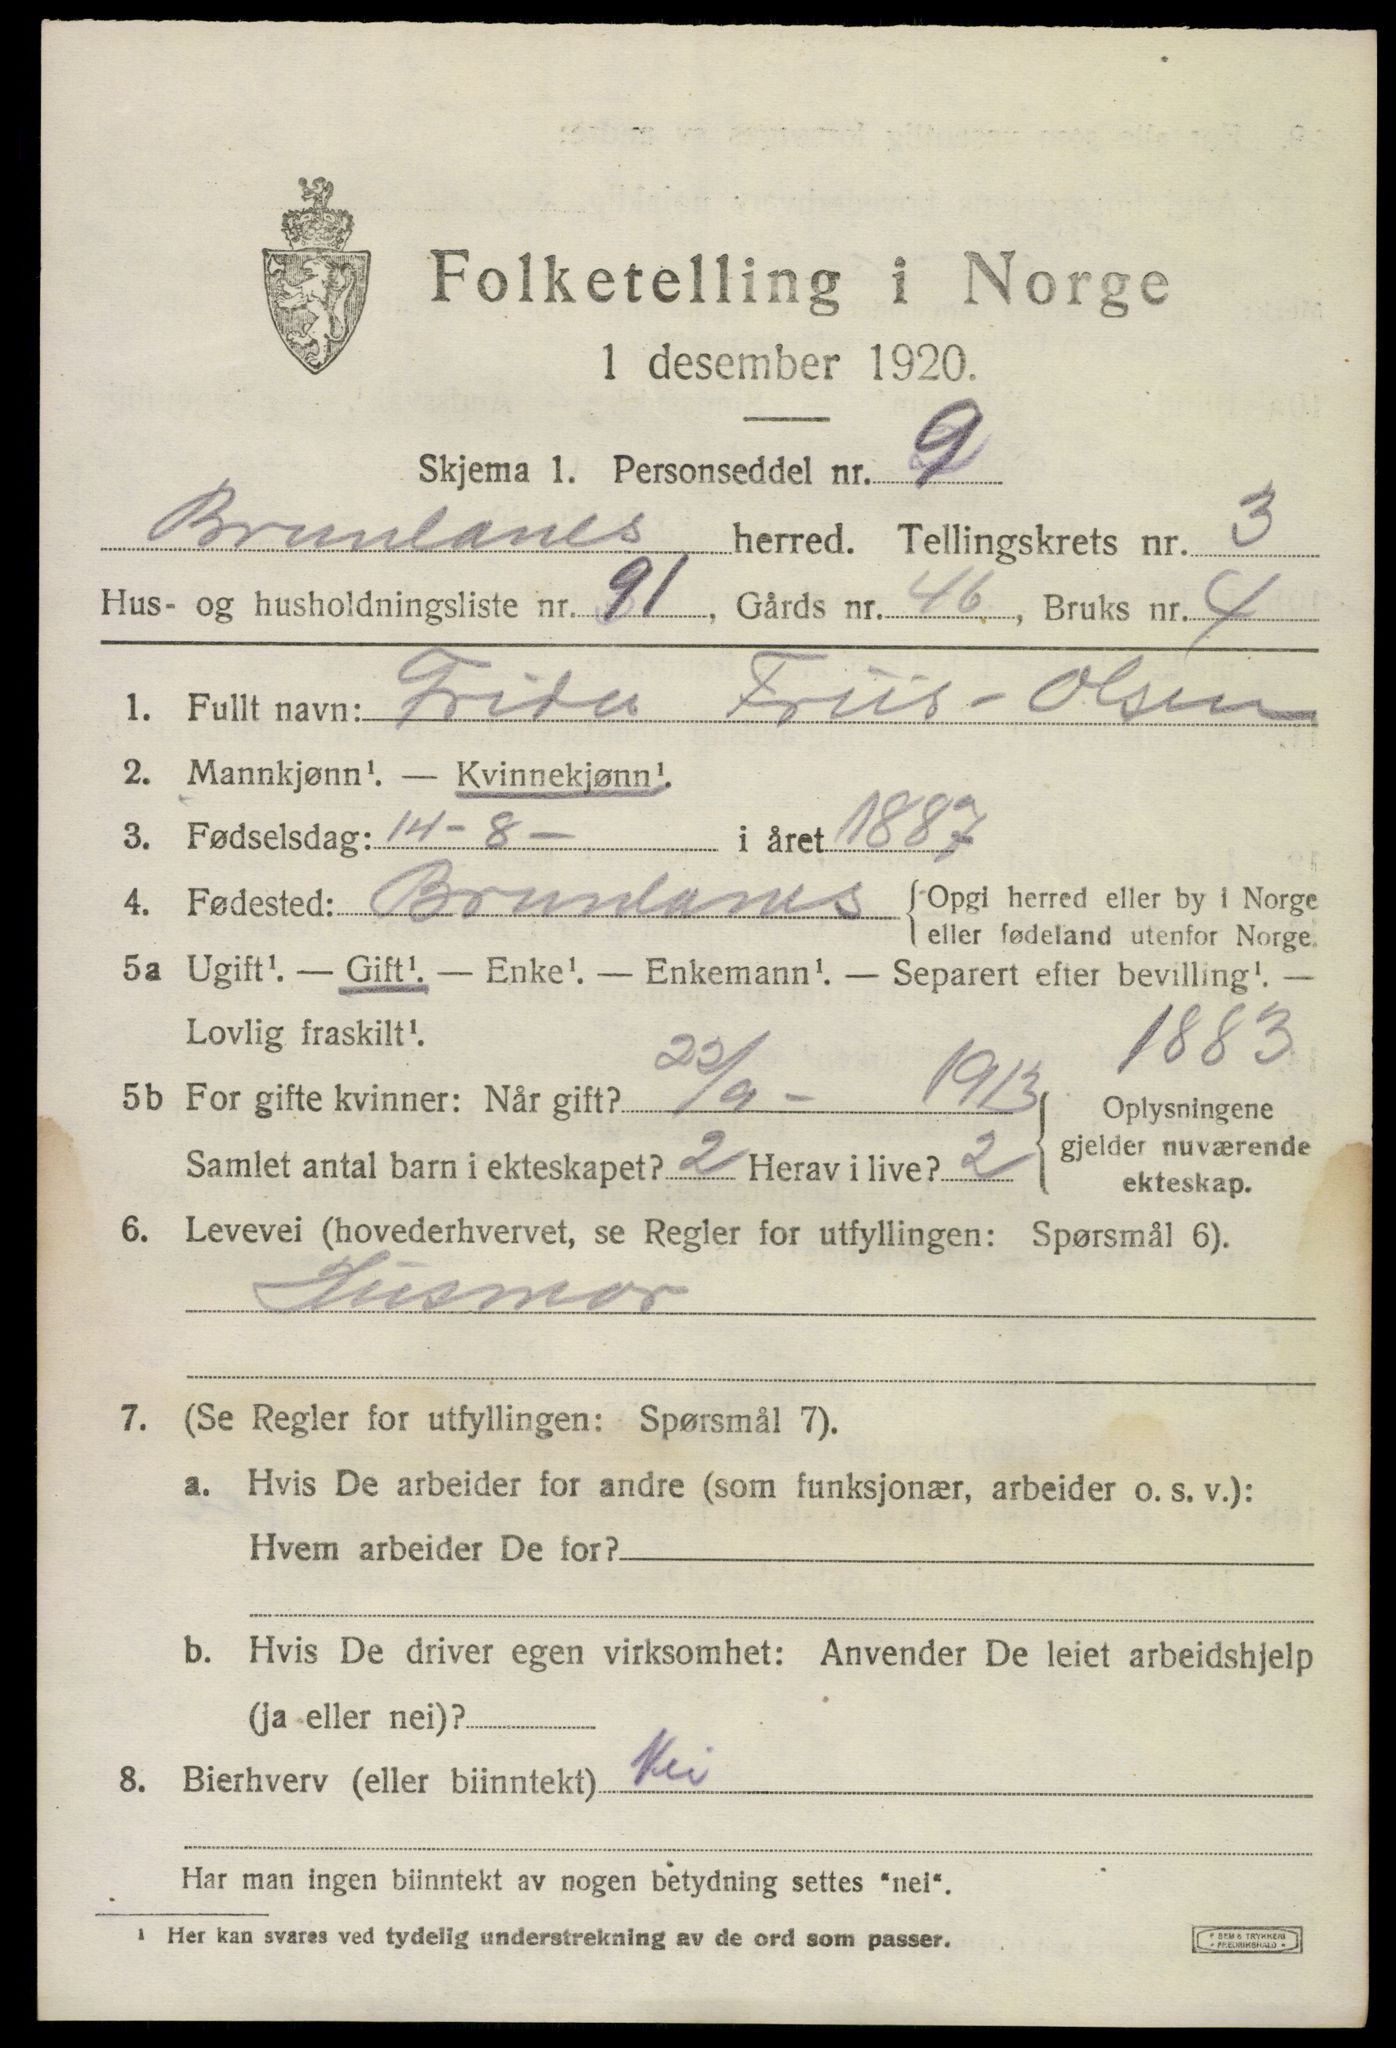 Folketelling i Norge
1 desember 1920.
Skjema 1. Personseddel nr. 9
Brunlanes herred. Tellingskrets nr. 3
Hus- og husholdningsliste nr. 91, Gårds nr. 46, Bruks nr. 4
1. Fullt navn: Frida Friis-Olsen
2. Mannkjønn¹. — Kvinnekjønn¹.
3. Fødselsdag: 14-8- i året 1887
4. Fødested: Brunlanes {Opgi herred eller by i Norge
eller fødeland utenfor Norge.
5a Ugift¹. — Gift¹. — Enke¹. — Enkemann¹. — Separert efter bevilling¹. —
Lovlig fraskilt¹. 1883
5b For gifte kvinner: Når gift? 22/9 - 1913 { Oplysningene
Samlet antal barn i ekteskapet? 2 Herav i live? 2 gjelder nuværende
ekteskap.
6. Levevei (hovederhvervet, se Regler for utfyllingen: Spørsmål 6).
Husmor
7. (Se Regler for utfyllingen: Spørsmål 7).
a. Hvis De arbeider for andre (som funksjonær, arbeider o. s. v.):
Hvem arbeider De for?
b. Hvis De driver egen virksomhet: Anvender De leiet arbeidshjelp
(ja eller nei)?
8. Bierhverv (eller biinntekt) Nei
Har man ingen biinntekt av nogen betydning settes "nei".
¹ Her kan svares ved tydelig understrekning av de ord som passer.
SEM & TRYKKERI
FREDRIKSHALD